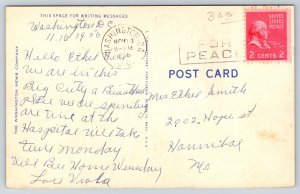 THIS SPACE FOR WRITING MESSAGES
Washington D.C.
11.16 1956
Hello Ethel
we are in this
Big City a Beautiful
Place we are spending
our time at the
Hospital will take
time Monday
Will Bee Home Wensday
Love Viola
THE WASHINGTON NEWS COMPANY
WASHINGTON, D.C.
NOV
1956
PRAY
FOR
PEACE
2 CENTS 2
POST CARD
Mrs. Ethel Smith
2002. Hope st
Hannibal
Mo